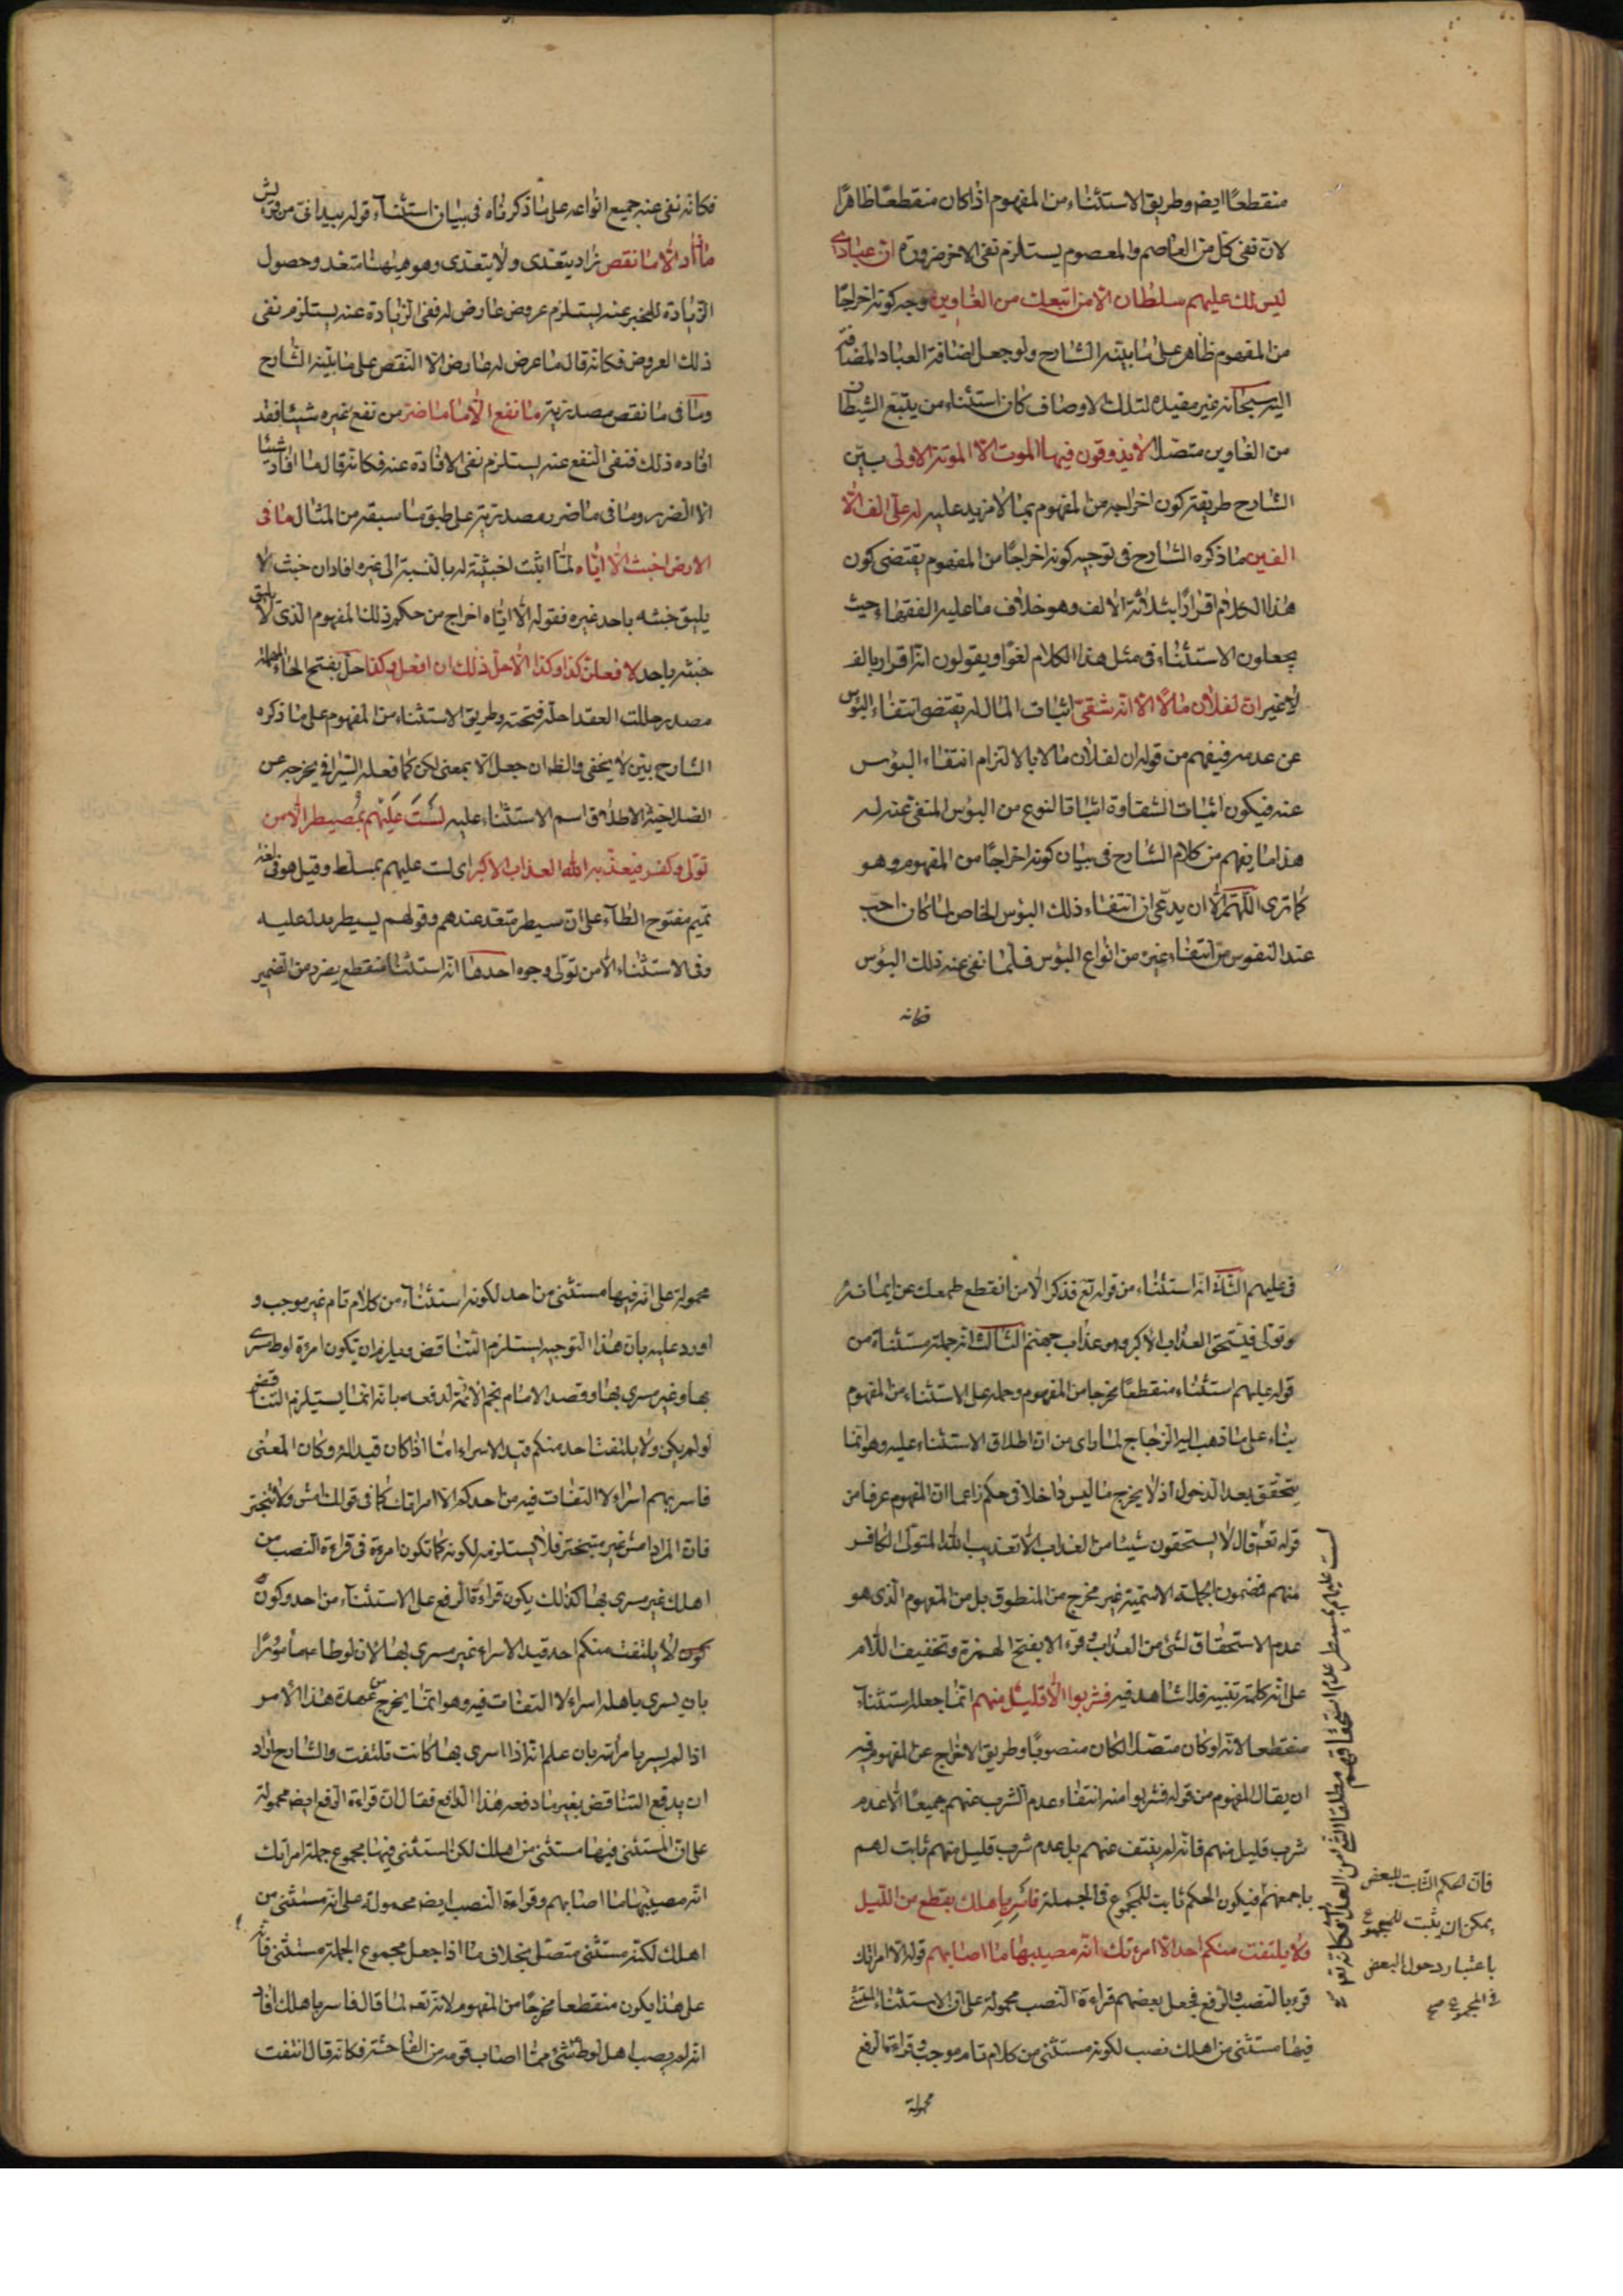 منقطعًا ايضه وطريق الاستثناء من المفهوم اذا كان منقطعًا ظاهرًا
لان نفى كل من العاصم والمعصوم يستلزم نفى الاخر ضرورة ان عبادى
ليس لك عليهم سلطان الا من اتبعك من الغاوين وجه كونه اخراجًا
من المفهوم ظاهر على ما بيّنه الشارح ولو جعل اضافة العباد المضافة
اليه سبحانه غير مفيدة لتلك الاوصاف كان استثناء من يتبع الشيطان
من الغاوين متصلا لا يذوقون فيها الموت الا الموتة الاولى بيّن
الشارح طريقة كون اخراجه من المفهوم بما لا مزيد عليه له علىّ الف الّا
الفين ما ذكره الشارح فى توجيه كونه اخراجًا من المفهوم يقتضى كون
هذا الكلام اقرارًا بثلاثة الالف وهو خلاف ما عليه الفقهاء حيث
يجعلون الاستثناء فى مثل هذا الكلام لغوًا ويقولون انه اقرار بالف
لا غير ان لفلان مالًا الا انه شقىّ اثبات المال له يقتضى انتفاء البؤس
عن عدمه فيفهم من قوله ان لفلان مالا بالالتزام انتفاء البؤس
عنه فيكون اثبات الشقاوة اثباتا لنوع من البؤس المنفىّ عنه له
هذا ما يفهم من كلام الشارح فى بيان كونه اخراجًا من المفهوم وهو
كما ترى اللهم الّا ان يدّعى ان انتفاء ذلك البؤس الخاص لما كان احبّ
عند النفوس من انتفاء غيره من انواع البؤس فلما نفى عنه ذلك البؤس
فكانه
فكانه نفى عنه جميع انواعه على ما ذكرناه فى بيان استثناء قوله بيد انى من قريش
ما زاد الّا ما نقص زاد يتعدى ولا يتعدى وهو هيهنا متعد وحصول
الزيادة للمخبر عنه يستلزم عروض عارض له فنفى الزيادة عنه يستلزم نفى
ذلك العروض فكانه قال ما عرض له عارض الا النقص على ما بيّنه الشارح
وما فى ما نقص مصدرية ما نفع الّا ما ضر من نفع غيره شيئا فقد
افاده ذلك فنفى النفع عنه يستلزم نفى الافادة عنه فكانه قال ما افاد شيئا
الا الضرر وما فى ما ضر مصدرية على طبق ما سبقه من المثال ما فى
الارض اخبث الّا ايّاه لمّا اثبت اخبثية له بالنسبة الى غيره افاد ان خبثه لا
يليق خبثه باحد غيره فقوله الّا ايّاه اخراج من حكم ذلك المفهوم الذى لا يليق
خبثه باحد لا فعلنّ كذا وكذا الّا حلّ ذلك ان افعل وكذا حلّ بفتح الحاء المهملة
مصدر حللت العقد احلّه فتحته وطريق الاستثناء من المفهوم على ما ذكره
الشارح بيّن لا يخفى والظ ان جعل الّا بمعنى لكن كما فعله السيرافى يخرجه عن
اطلاق اسم الاستثناء عليه لَسْتَ عَلَيْهِم بمُصَيطر الّا من
تولّى وكفر فيعذّبه الله العذاب الاكبر اى لست عليهم بمسلّط وقيل هو فى لغة
تميم مفتوح الطاء على ان سيطر متعد عندهم وقولهم يسيطر يدلّ عليه
وفى الاستثناء الّا من تولّى وجوه احدها انه استثناء منقطع من الضمير
فى عليهم الثانى انه استثناء من قوله تع فذكر الّا من انقطع طمعك عن ايمانه
وتولى فيستحق العذاب الاكبر وهو عذاب جهنم الثالث انه جملة مستثناة من
قوله عليهم استثناء منقطعًا مخرجا من المفهوم وحمله على الاستثناء من المفهوم
بناء على ما ذهب اليه الزجاج لما راى من ان اطلاق الاستثناء عليه وهو انما
يتحقق بعد الدخول اذ لا يخرج ما ليس داخلا فى حكم زاعما ان المفهوم عرفا من
قوله تع قال لا يستحقون شيئا من العذاب الا تعذيب الله المتولّى الكافر
منهم فمضمون الجملة الاسميّة غير مخرج من المنطوق بل من المفهوم الذى هو
عدم الاستحقاق لشئ من العذاب وقرء الا بفتح الهمزة وتخفيف اللام
على انه كلمة تنبيه فلا شاهد فيه فشربوا الّا قليل منهم انما جعله استثناء
منقطعا لانه لو كان متصلا لكان منصوبًا وطريق الاخراج عن المفهوم فيه
ان يقال المفهوم من قوله فشربوا منه انتفاء عدم الشرب عنهم جميعًا الّا عدم
شرب قليل منهم فانه لم ينتف عنهم بل عدم شرب قليل منهم ثابت لهم
باجمعهم فيكون الحكم ثابت للمجموع فى الجملة فَاَسرِ بِاهلك بقطع من الليل
ولا يلتفت منكم احد الّا امرءتك انه مصيبها ما اصابهم قوله الا امراتك
قرء بالنصب والرفع فجعل بعضهم قراءة النصب محمولة على ان الاستثناء
فيها مستثنى من اهلك نصب لكونه مستثنى من كلام تام موجب وقراءة الرفع
محمولة
لست عليهم بمسيطر عدم استحقاقهم مطلقا لشئ من العذاب فكانه تع
فان الحكم الثابت للبعض
يمكن ان يثبت للمجموع
باعتبار دخول البعض
فى المجموع صح
محمولة على انه فيها مستثنى من احد لكونه استثناء من كلام تام غير موجب و
اورد عليه بان هذا التوجيه يستلزم التناقض ويلزم ان يكون امرءة لوط مسرى
بها وغير مسرى بها وقصد الامام نجم الائمة لدفعه بانه انما يستلزم التناقض
لو لم يكن ولا يلتفت احد منكم قيد الاسراء امّا اذا كان قيدا له وكان المعنى
فاسر بهم اسراء لا التفات فيه من احدكم الا امراتك كما فى قولك امش ولا تتبختر
فان المراد امش غير متبختر فلا يستلزمه لكونه كما تكون امرءة فى قراءة النصب من
اهلك غير مسرى بها كذلك يكون قراءة الرفع على الاستثناء من احد وكون
لا يلتفت منكم احد قيد الاسراء غير مسرى بها لان لوطا عم مأمورًا
بان يسرى باهله اسراء لا التفات فيه وهو انما يخرج من عهدة هذا الامر
اذا لم يسر بامرأته بان علم انه اذا اسرى بها كانت تلتفت والشارح اراد
ان يدفع التناقض بغير ما دفعه هذا الدافع فقال ان قراءة الرفع ايضه محمولة
على ان المستثنى فيها مستثنى من اهلك لكن المستثنى فيها مجموع جملة امراتك
انه مصيبها ما اصابهم وقراءة النصب ايضه محمولة على انه مستثنى من
اهلك لكنه مستثنى متصل بخلاف ما اذا جعل مجموع الجملة مستثنى فانه
على هذا يكون منقطعا مخرجًا من المفهوم لانه تع لما قال فاسر باهلك افاد
انه لم يصب اهل لوط شئ مما اصاب قومه من الفاحشة فكانه قال انتفت